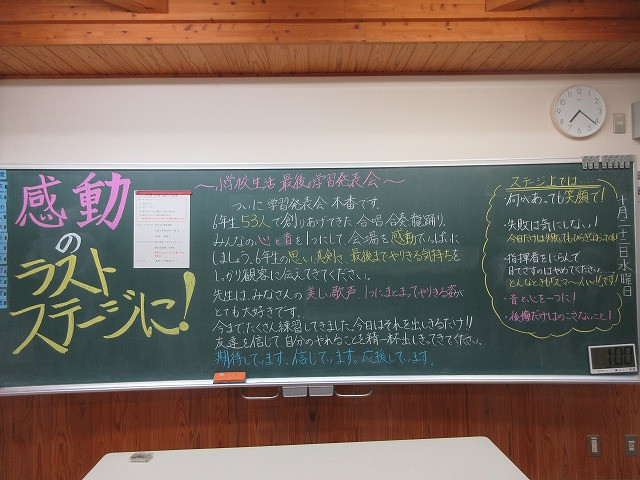 感動
の
ラスト
ステージに!
～小学校生活 最後の学習発表会～
ついに学習発表会 本番です。
6年生53人で創りあげてきた 合唱 合奏 龍踊り。
みんなの心と音を1つにして、会場を感動でいっぱいに
しましょう。6年生の思い、真剣さ、最後までやりきる気持ちを
しっかり観客に伝えてきてください。
先生は、みなさんの美しい歌声、1つにまとまってやりきる姿が
とても大好きです。
今までたくさん練習してきました。今日はそれを出しきるだけ!!
友達を信じて 自分のやれることを精一杯出しきってきてください。
期待しています。信じています。応援しています。
ステージ上では…
・何があっても笑顔で!
・失敗は気にしない!
・指揮者をにらんで
・音と心を一つに!
・後悔だけはのこさないこと!
水曜日
1:00